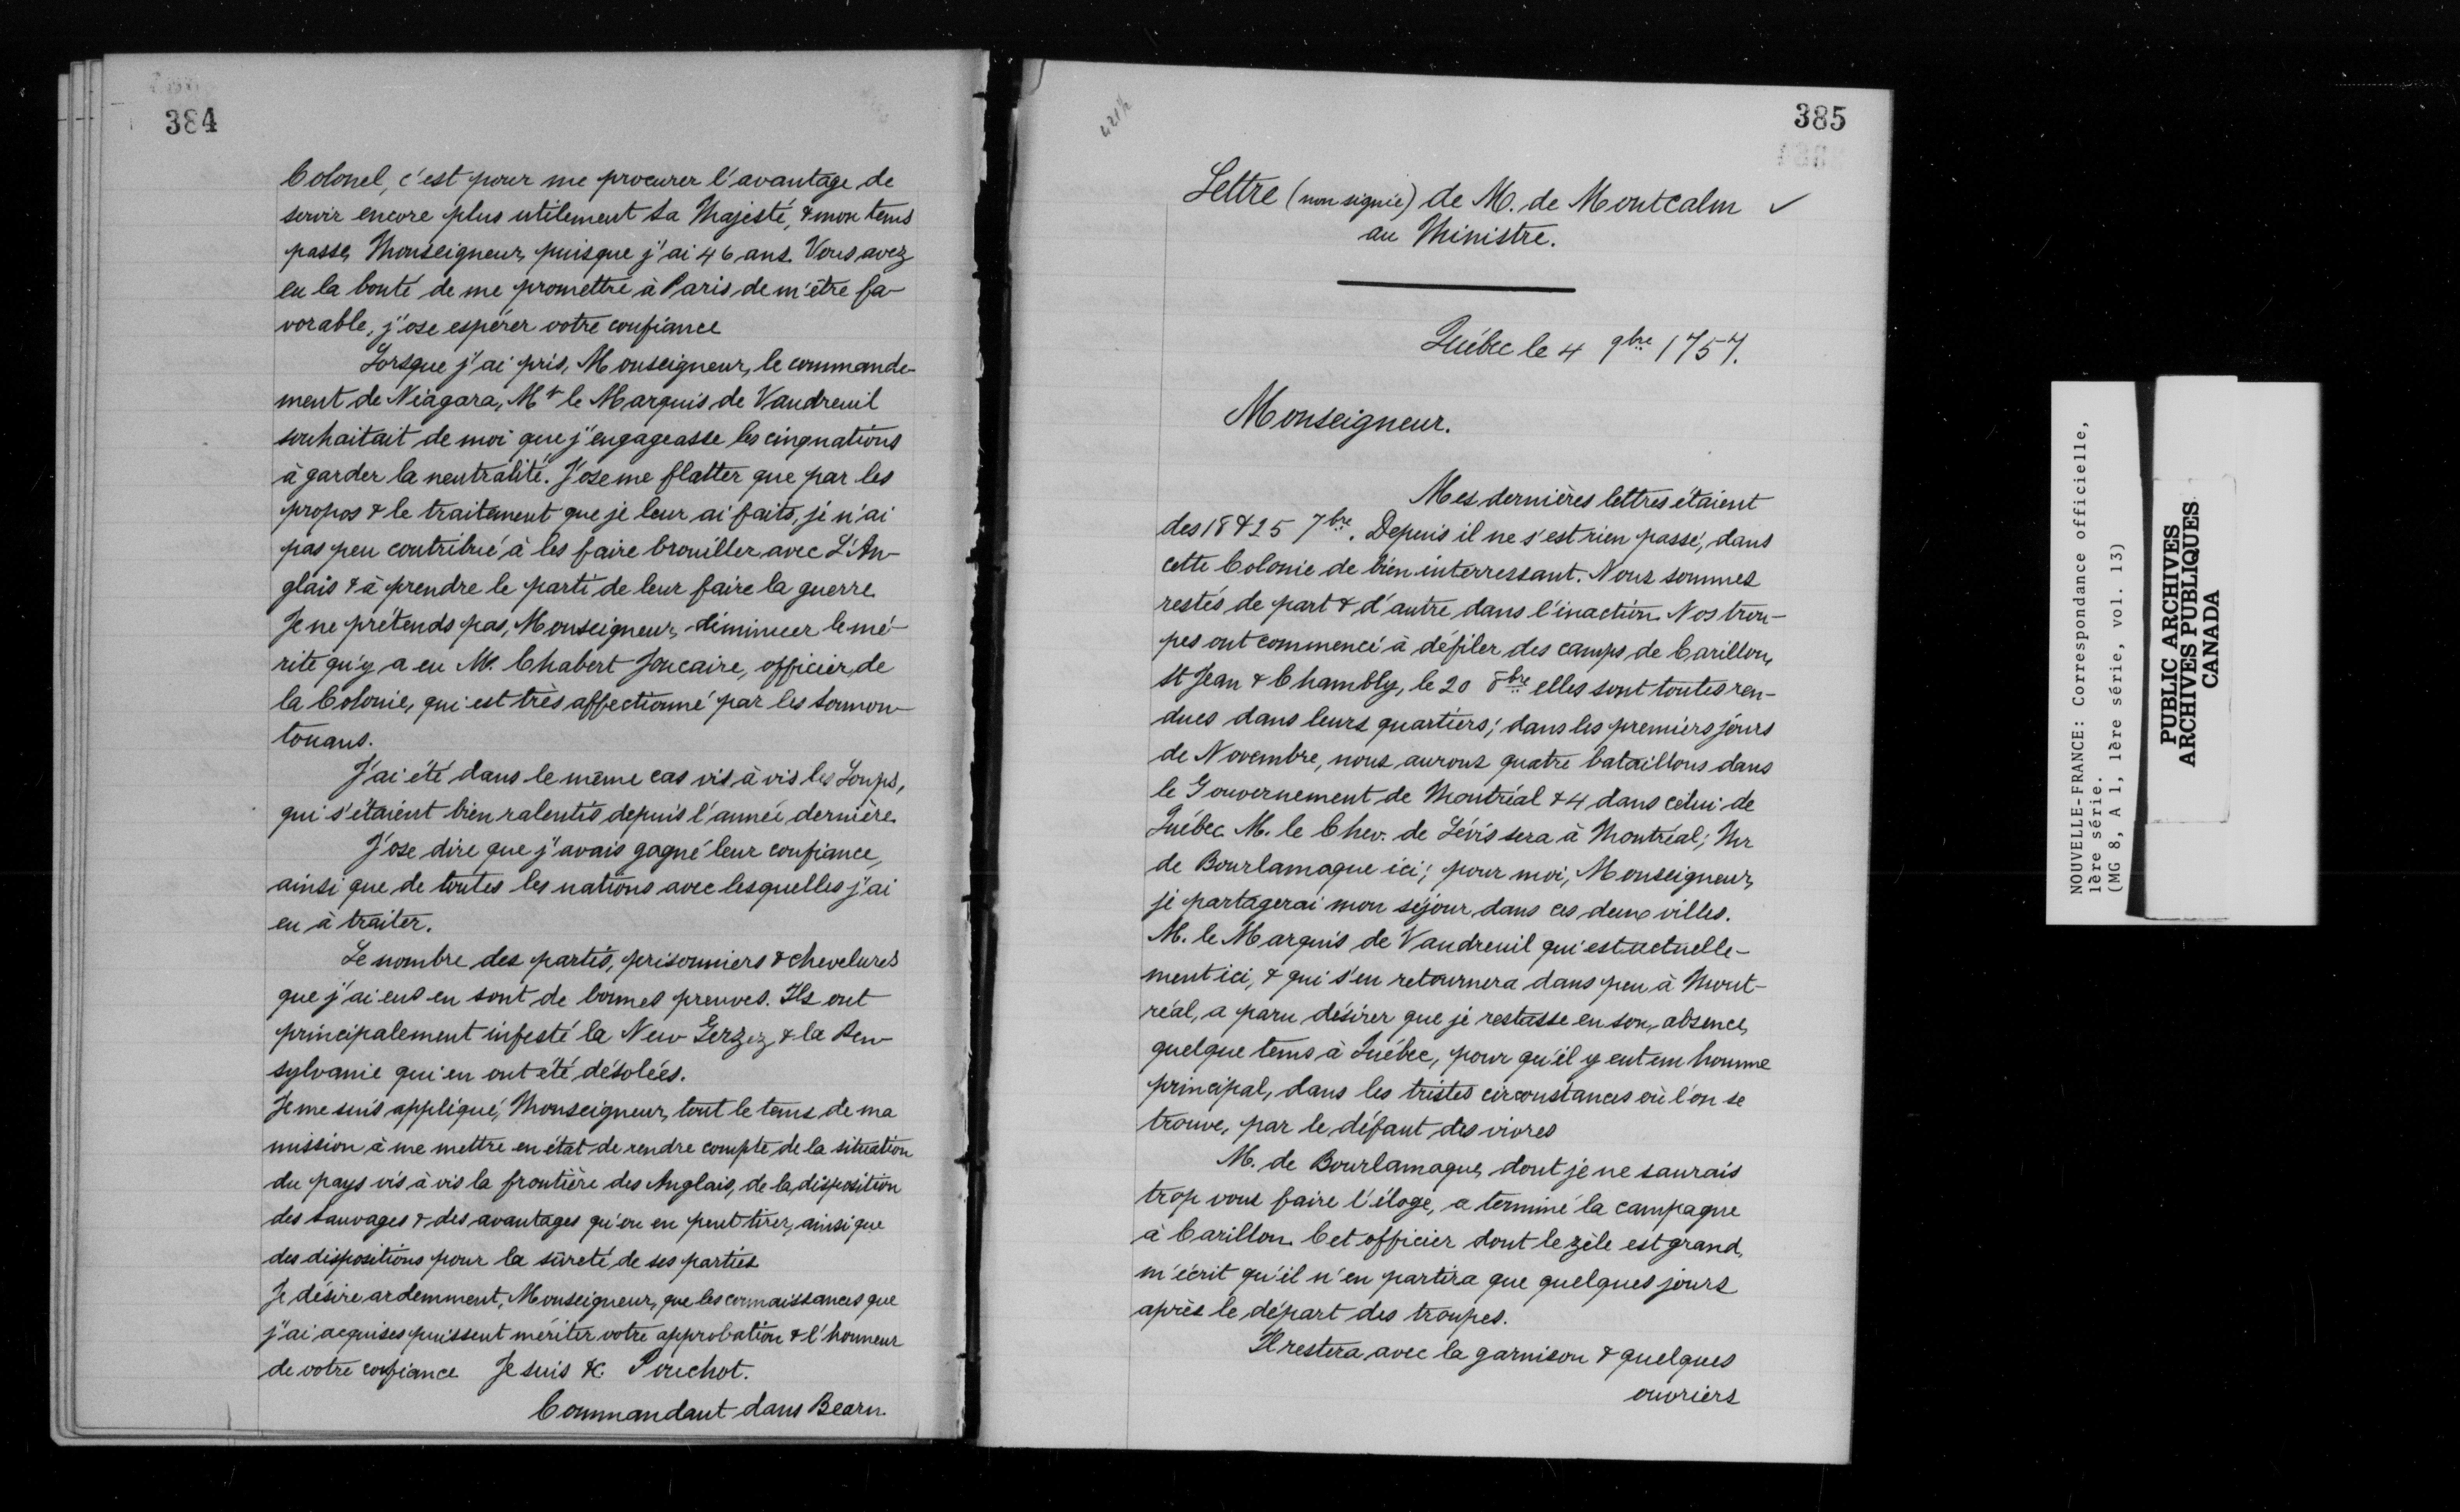 384
Colonel, c'est pour me procurer l'avantage de
servir encore plus utilement Sa Majesté, & mon tems
passe, Monseigneur, puisque j'ai 46 ans. Vous avez
eu la bonté de me promettre à Paris de m'être fa-
vorable, j'ose espérer votre confiance
Lorsque j'ai pris, Monseigneur, le commande-
ment de Niagara, Mr le Marquis de Vaudreuil
souhaitait de moi que j'engageasse les cinq nations
à garder la neutralité. J'ose me flatter que par les
propos & le traitement que je leur ai faits, je n'ai
pas peu contribué à les faire brouiller avec L'An-
glais & à prendre le parti de leur faire la guerre.
Je ne prétends pas, Monseigneur, diminuer le mé-
rite qu'y a eu M. Chabert Joncaire, officier de
la Colonie, qui est très affectionné par les Sonnon-
touans.
J'ai été dans le même cas vis à vis les Loups,
qui s'étaient bien ralentis depuis l'année dernière.
J'ose dire que j'avais gagné leur confiance,
ainsi que de toutes les nations avec lesquelles j'ai
eu à traiter.
Le nombre des partis, prisonniers & chevelures
que j'ai eus en sont de bonnes preuves. Ils ont
principalement infesté la New Gerzez & la Pen-
sylvanie qui en ont été désolées.
Je me suis appliqué, Monseigneur, tout le tems de ma
mission à me mettre en état de rendre compte de la situation
du pays vis à vis la frontière des Anglais, de la disposition
des Sauvages & des avantages qu'on en peut tirer, ainsi que
des dispositions pour la sûreté de ses parties
Je désire ardemment, Monseigneur, que les connaissances que
j'ai acquises puissent mériter votre approbation & l'honneur
de votre confiance Je suis &c. Pouchot.
Commandant dans Bearn.
385
421½
Lettre (non signée) de M. de Montcalm ✓
au Ministre.
Québec le 4 9bre 1757.
Monseigneur.
Mes dernières lettres étaient
des 18 & 25 7bre. Depuis il ne s'est rien passé, dans
cette Colonie de bien interressant. Nous sommes
restés de part & d'autre dans l'inaction. Nos trou-
pes ont commencé à défiler des camps de Carillon,
St Jean & Chambly, le 20 8bre elles sont toutes ren-
dues dans leurs quartiers; dans les premiers jours
de Novembre, nous aurons quatre bataillons dans
le Gouvernement de Montréal & 4 dans celui de
Québec. M. le Chev. de Lévis sera à Montréal; Mr
de Bourlamaque ici; pour moi, Monseigneur,
je partagerai mon séjour dans ces deux villes.
M. le Marquis de Vaudreuil qui est actuelle-
ment ici, & qui s'en retournera dans peu à Mont-
réal, a paru désirer que je restasse en son absence,
quelque tems à Québec, pour qu'il y eut un homme
principal, dans les tristes circonstances où l'on se
trouve, par le défaut des vivres
M. de Bourlamaque, dont je ne saurais
trop vous faire l'éloge, a terminé la campagne
à Carillon. Cet officier dont le zèle est grand,
m'écrit qu'il n'en partira que quelques jours
après le départ des troupes.
Il restera avec la garnison & quelques
ouvriers
NOUVELLE-FRANCE: Correspondance officielle,
1ère série.
(MG 8, A 1, 1ère série, vol. 13)
PUBLIC ARCHIVES
ARCHIVES PUBLIQUES
CANADA